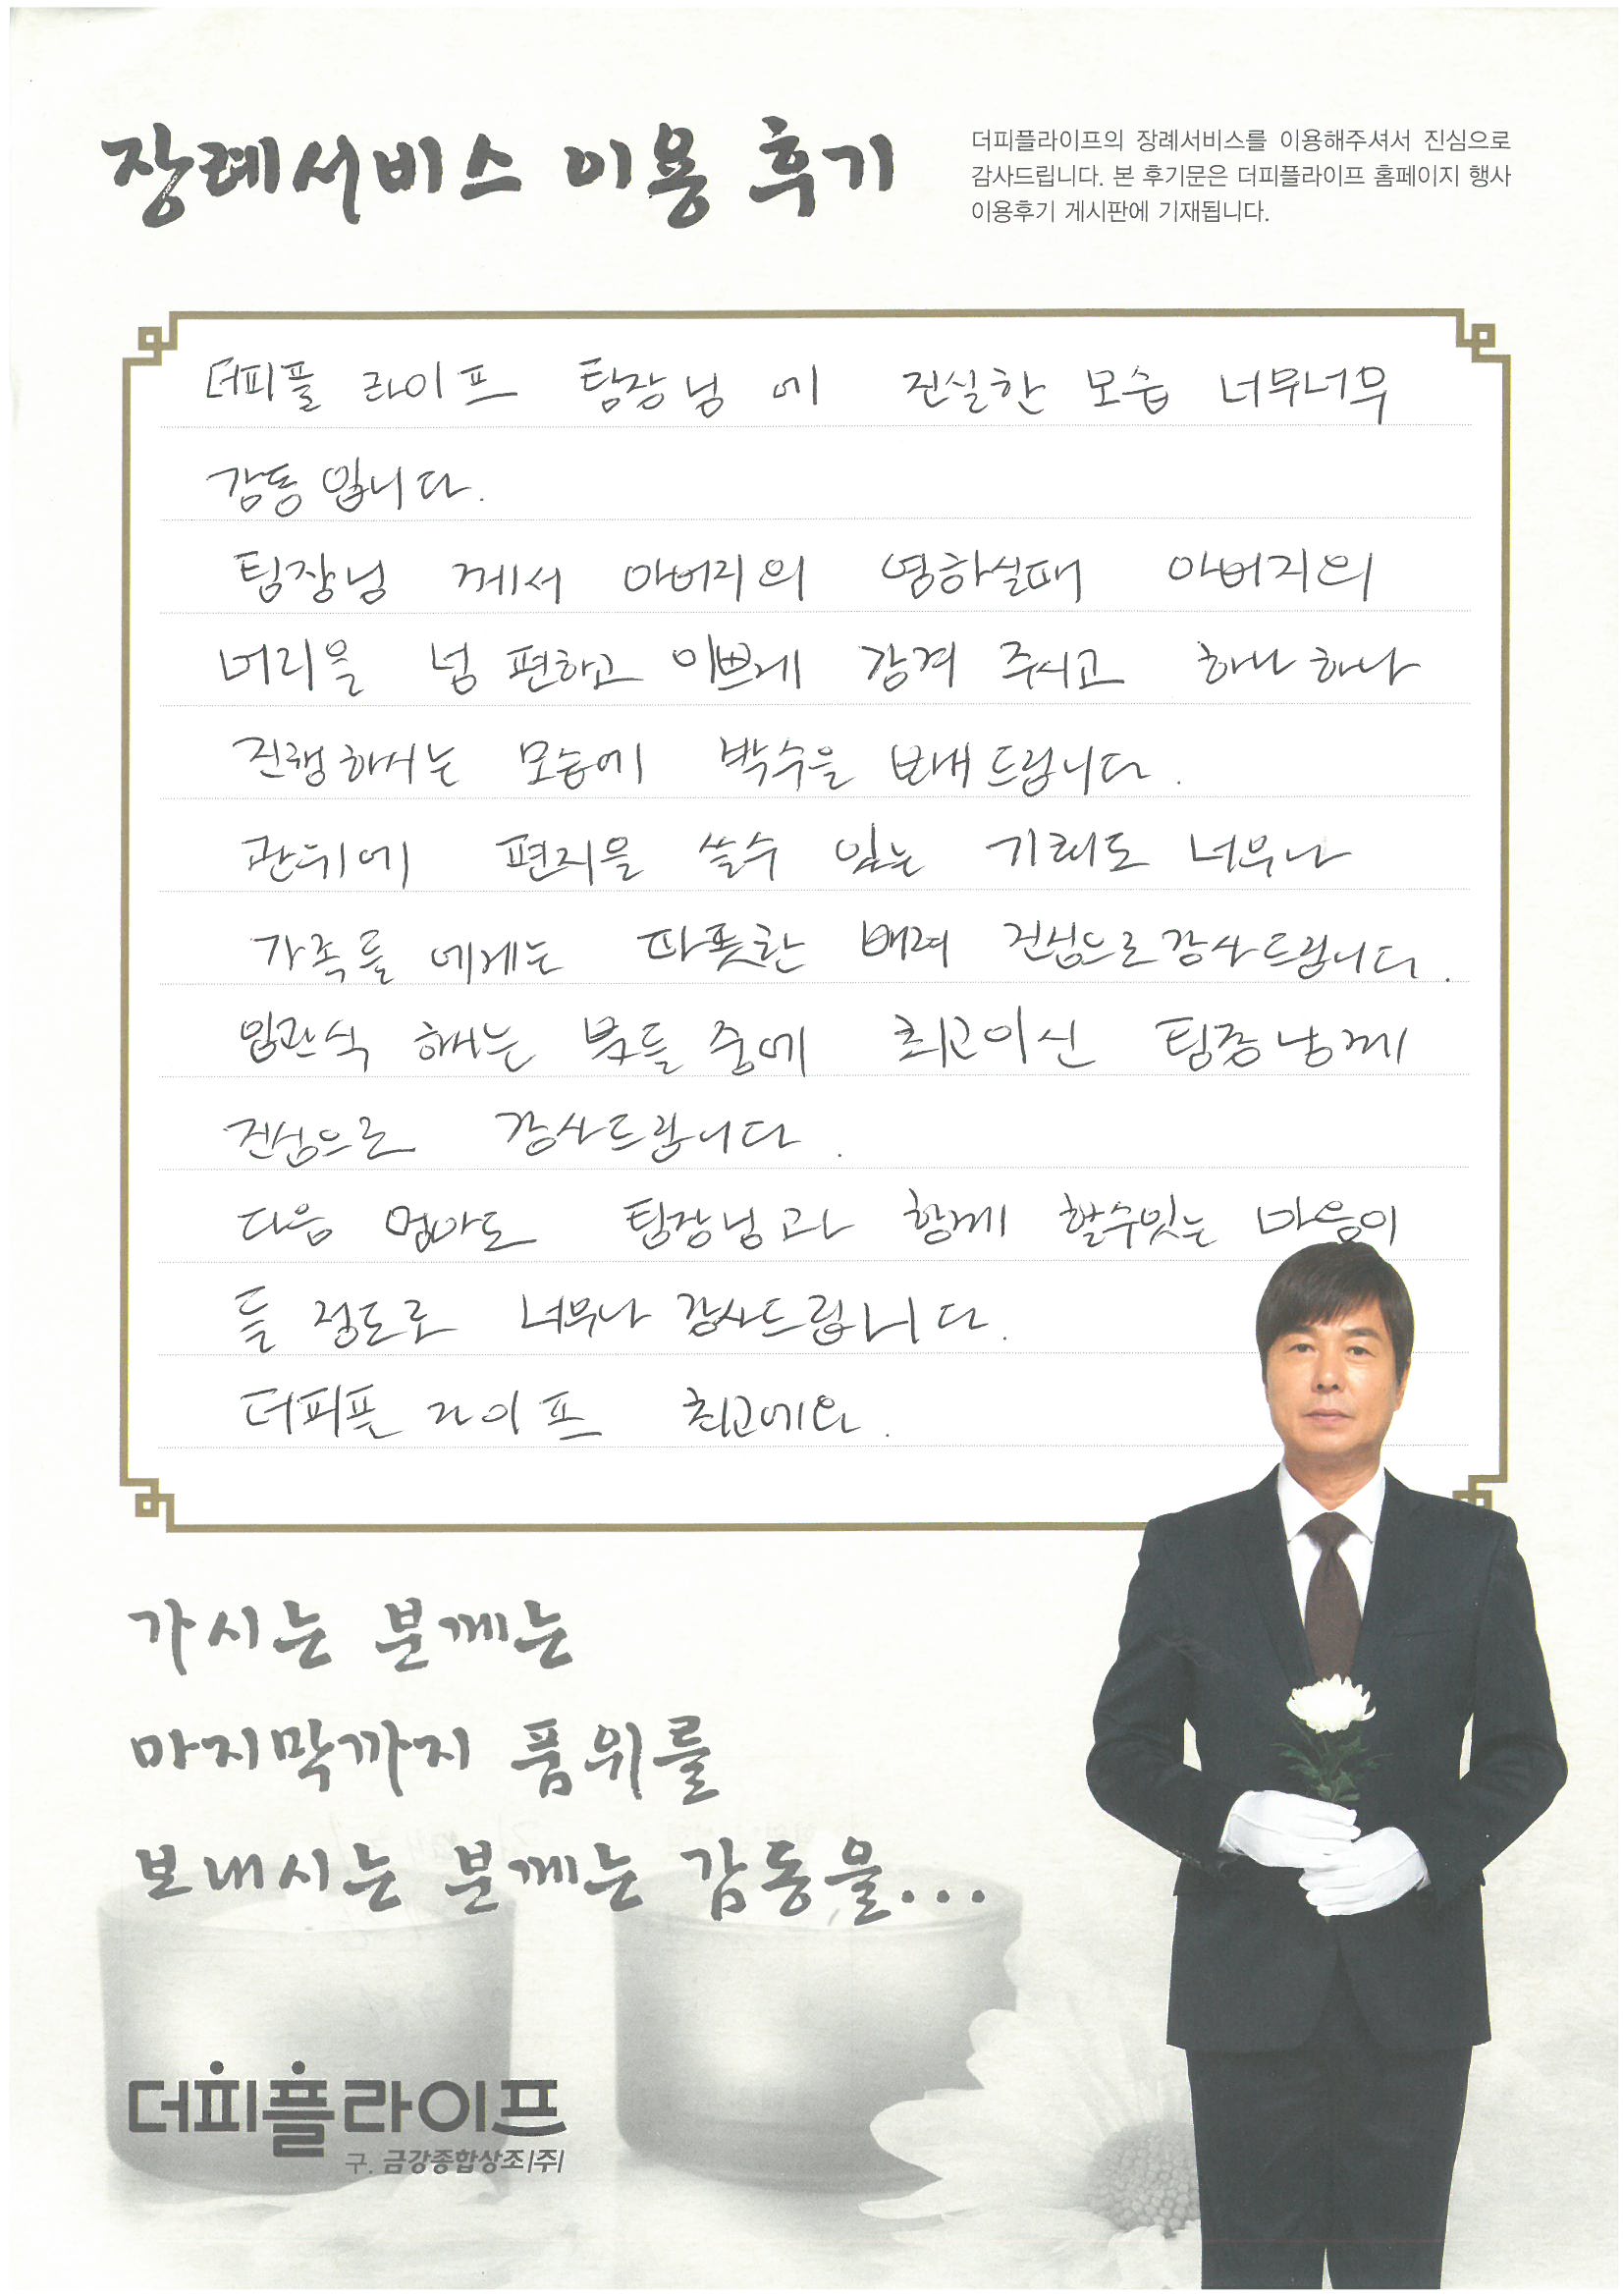 장례서비스 이용 후기
더피플라이프의 장례서비스를 이용해주셔서 진심으로
감사드립니다. 본 후기문은 더피플라이프 홈페이지 행사
이용후기 게시판에 기재됩니다.
더피플 라이프 팀장님 에 진실한 모습 너무너무
감동입니다.
팀장님 께서 아버지의 염하실때 아버지의
머리을 넘 편하고 이쁘게 감겨 주시고 하나 하나
진행하시는 모습에 박수을 보내 드립니다.
관위에 편지을 쓸수 있는 기회도 너무나
가족들 에게는 따뜻한 배려 진심으로 감사드립니다.
입관식 해는 분들 중에 최고이신 팀장님께
진심으로 감사드립니다.
다음 엄마도 팀장님과 함께 할수있는 마음이
들 정도로 너무나 감사드립니다.
더피플 라이프 최고에요.
가시는 분께는
마지막까지 품위를
보내시는 분께는 감동을...
더피플라이프
구. 금강종합상조(주)